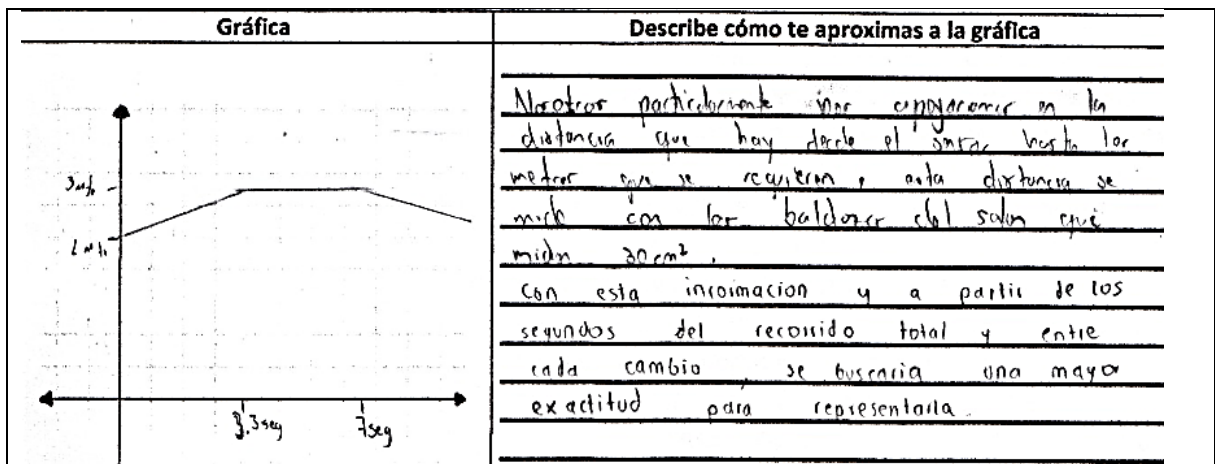 Gráfica
Describe cómo te aproximas a la gráfica
3 mts
2 mts
3.3 seg
7 seg
Nosotros particularmente nos en la
distancia que hay desde el hasta los
metros que se requieren, esta distancia se
mide con las baldosas del salon que
miden 30 cm²,
Con esta informacion y a partir de los
segundos del recorrido total y entre
cada cambio, se buscaria una mayor
exactitud para representarla.